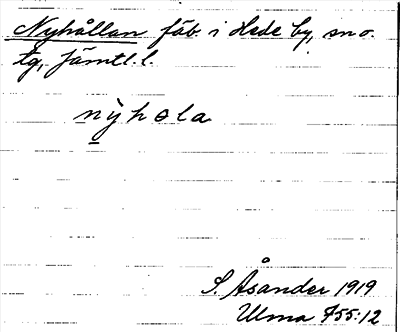 Nyhållan fäb. i Hede by, sn o.
tg, Jämtl. l.
nyhola
S. Åsander 1919
Ulma 755:12